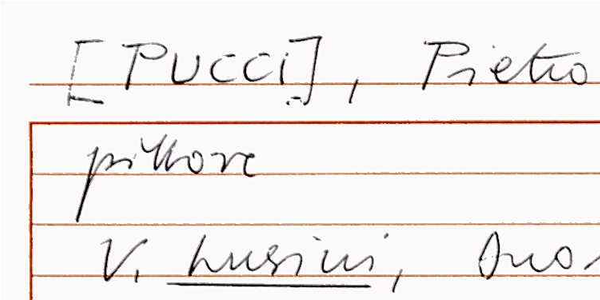 [PUCCI], Pietro
pittore
V. Lusini, Duo